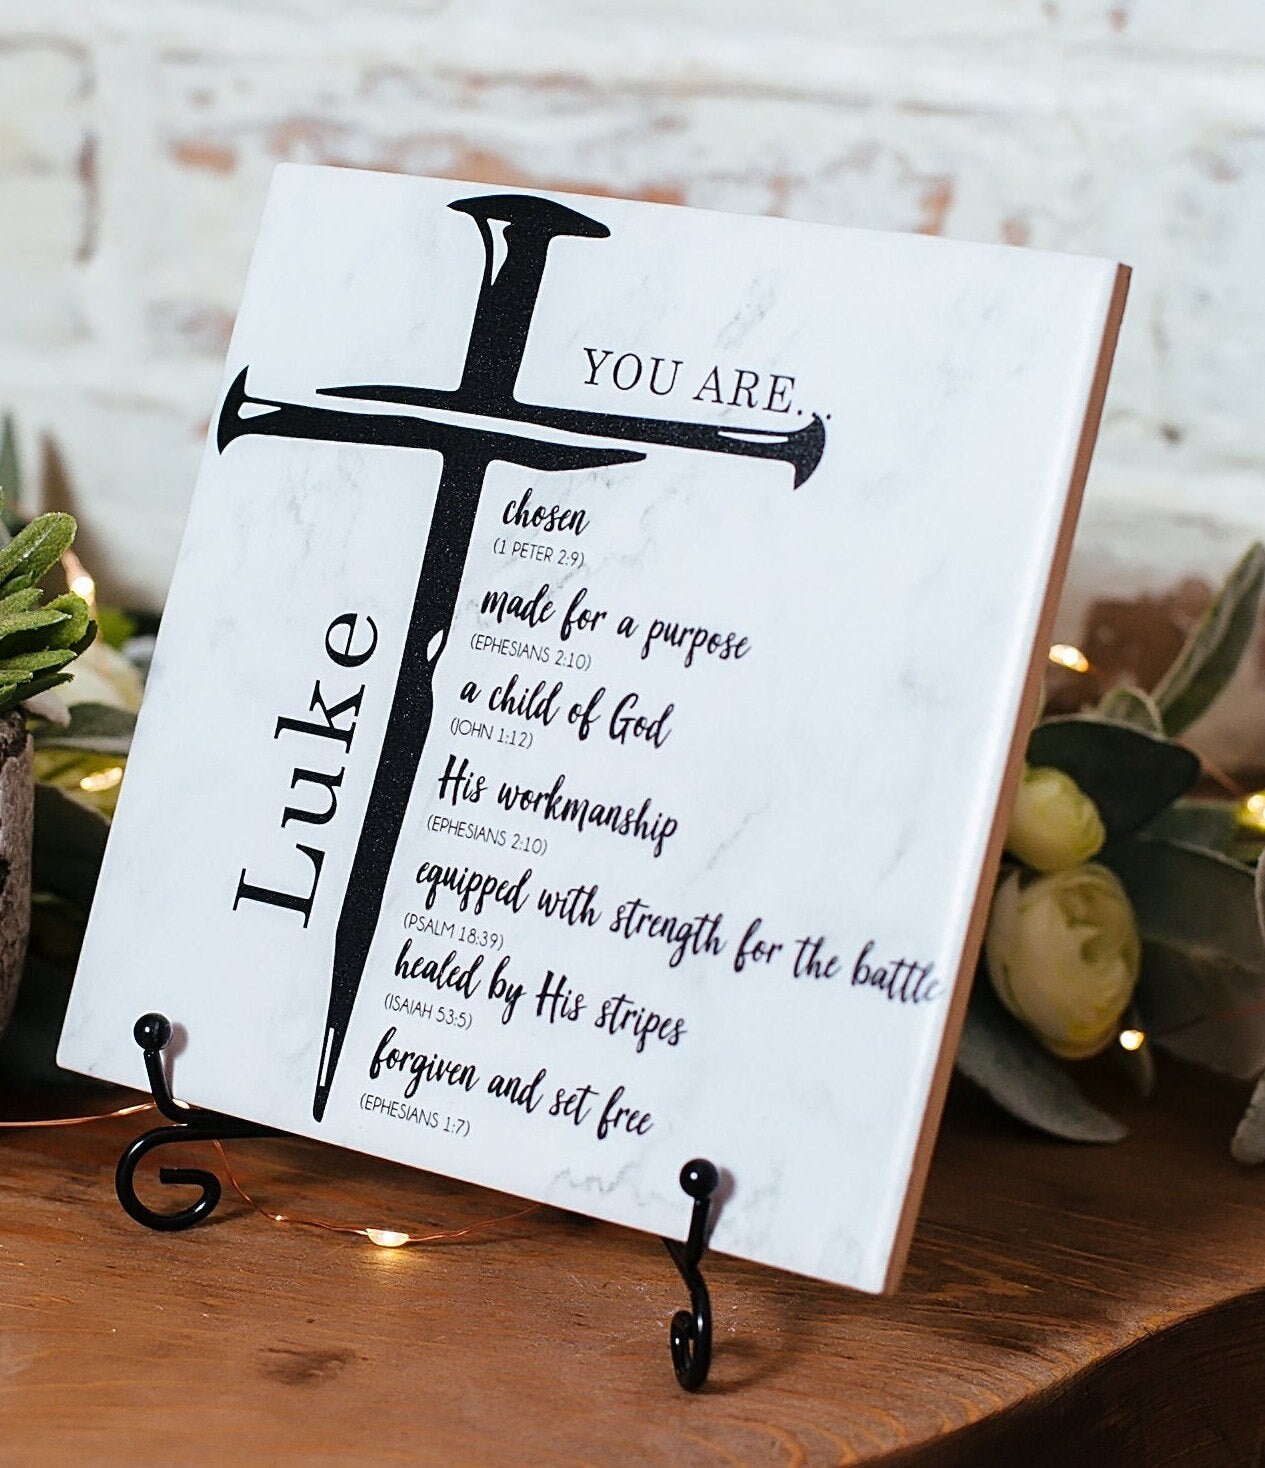 YOU ARE...
chosen
(1 PETER 2:9)
made for a purpose
(EPHESIANS 2:10)
a child of God
(JOHN 1:12)
His workmanship
(EPHESIANS 2:10)
equipped with strength for the battle
(PSALM 18:39)
healed by His stripes
(ISAIAH 53:5)
forgiven and set free
(EPHESIANS 1:7)
Luke